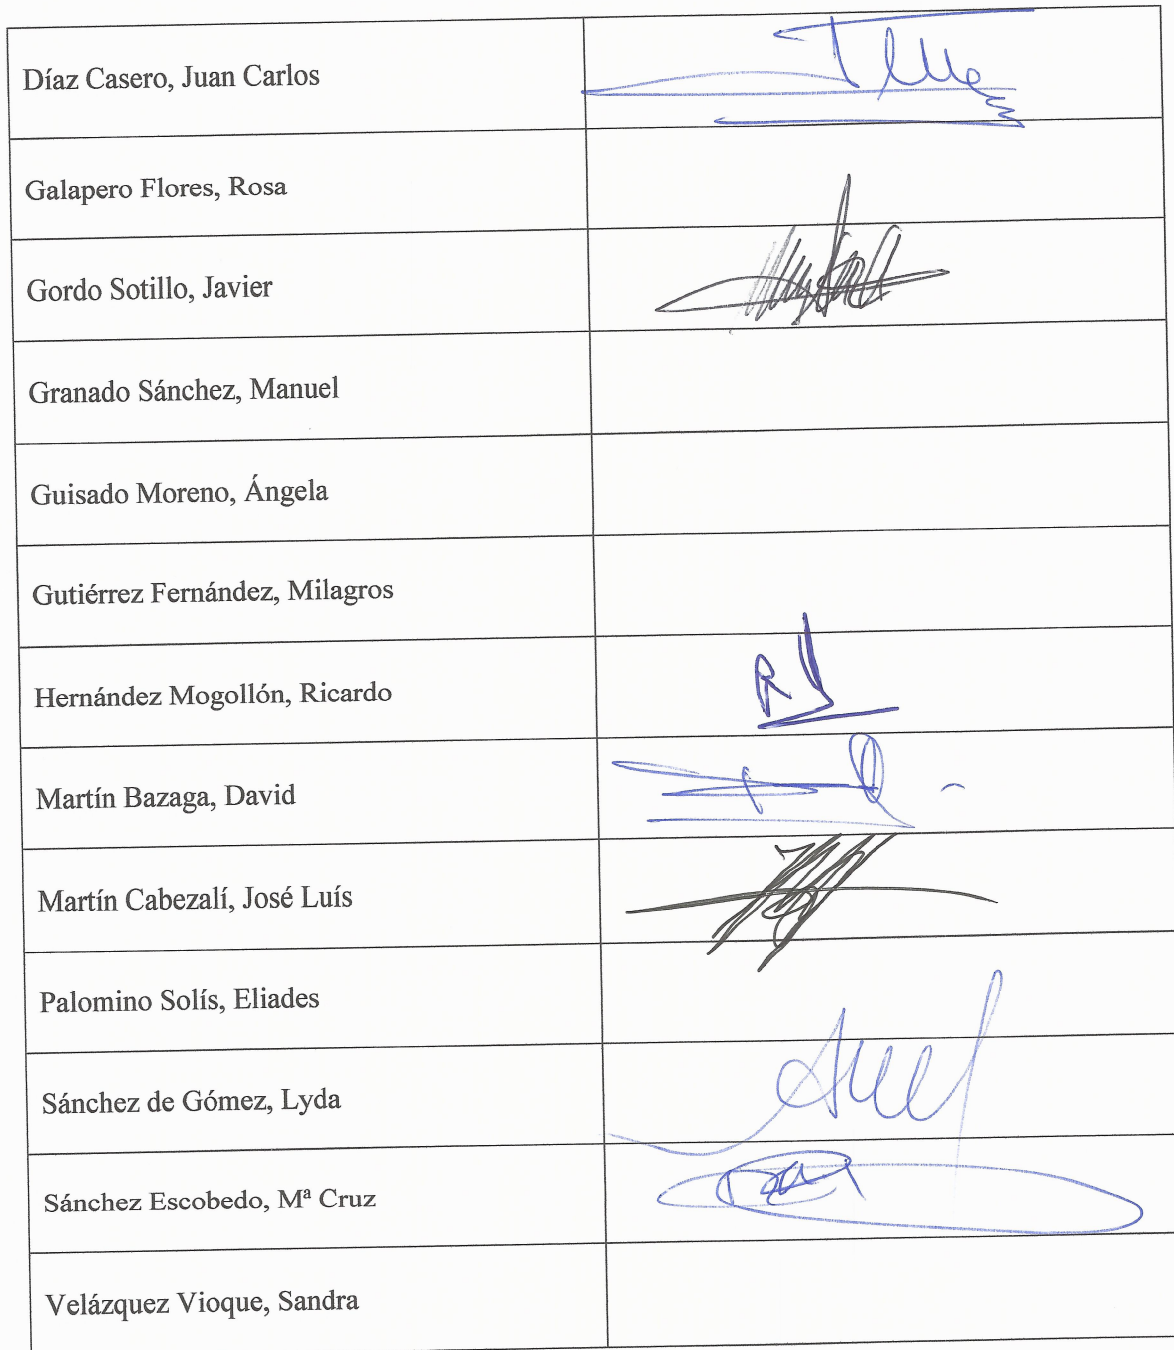 Díaz Casero, Juan Carlos
Galapero Flores, Rosa
Gordo Sotillo, Javier
Granado Sánchez, Manuel
Guisado Moreno, Ángela
Gutiérrez Fernández, Milagros
Hernández Mogollón, Ricardo
Martín Bazaga, David
Martín Cabezalí, José Luís
Palomino Solís, Eliades
Sánchez de Gómez, Lyda
Sánchez Escobedo, Mª Cruz
Velázquez Vioque, Sandra